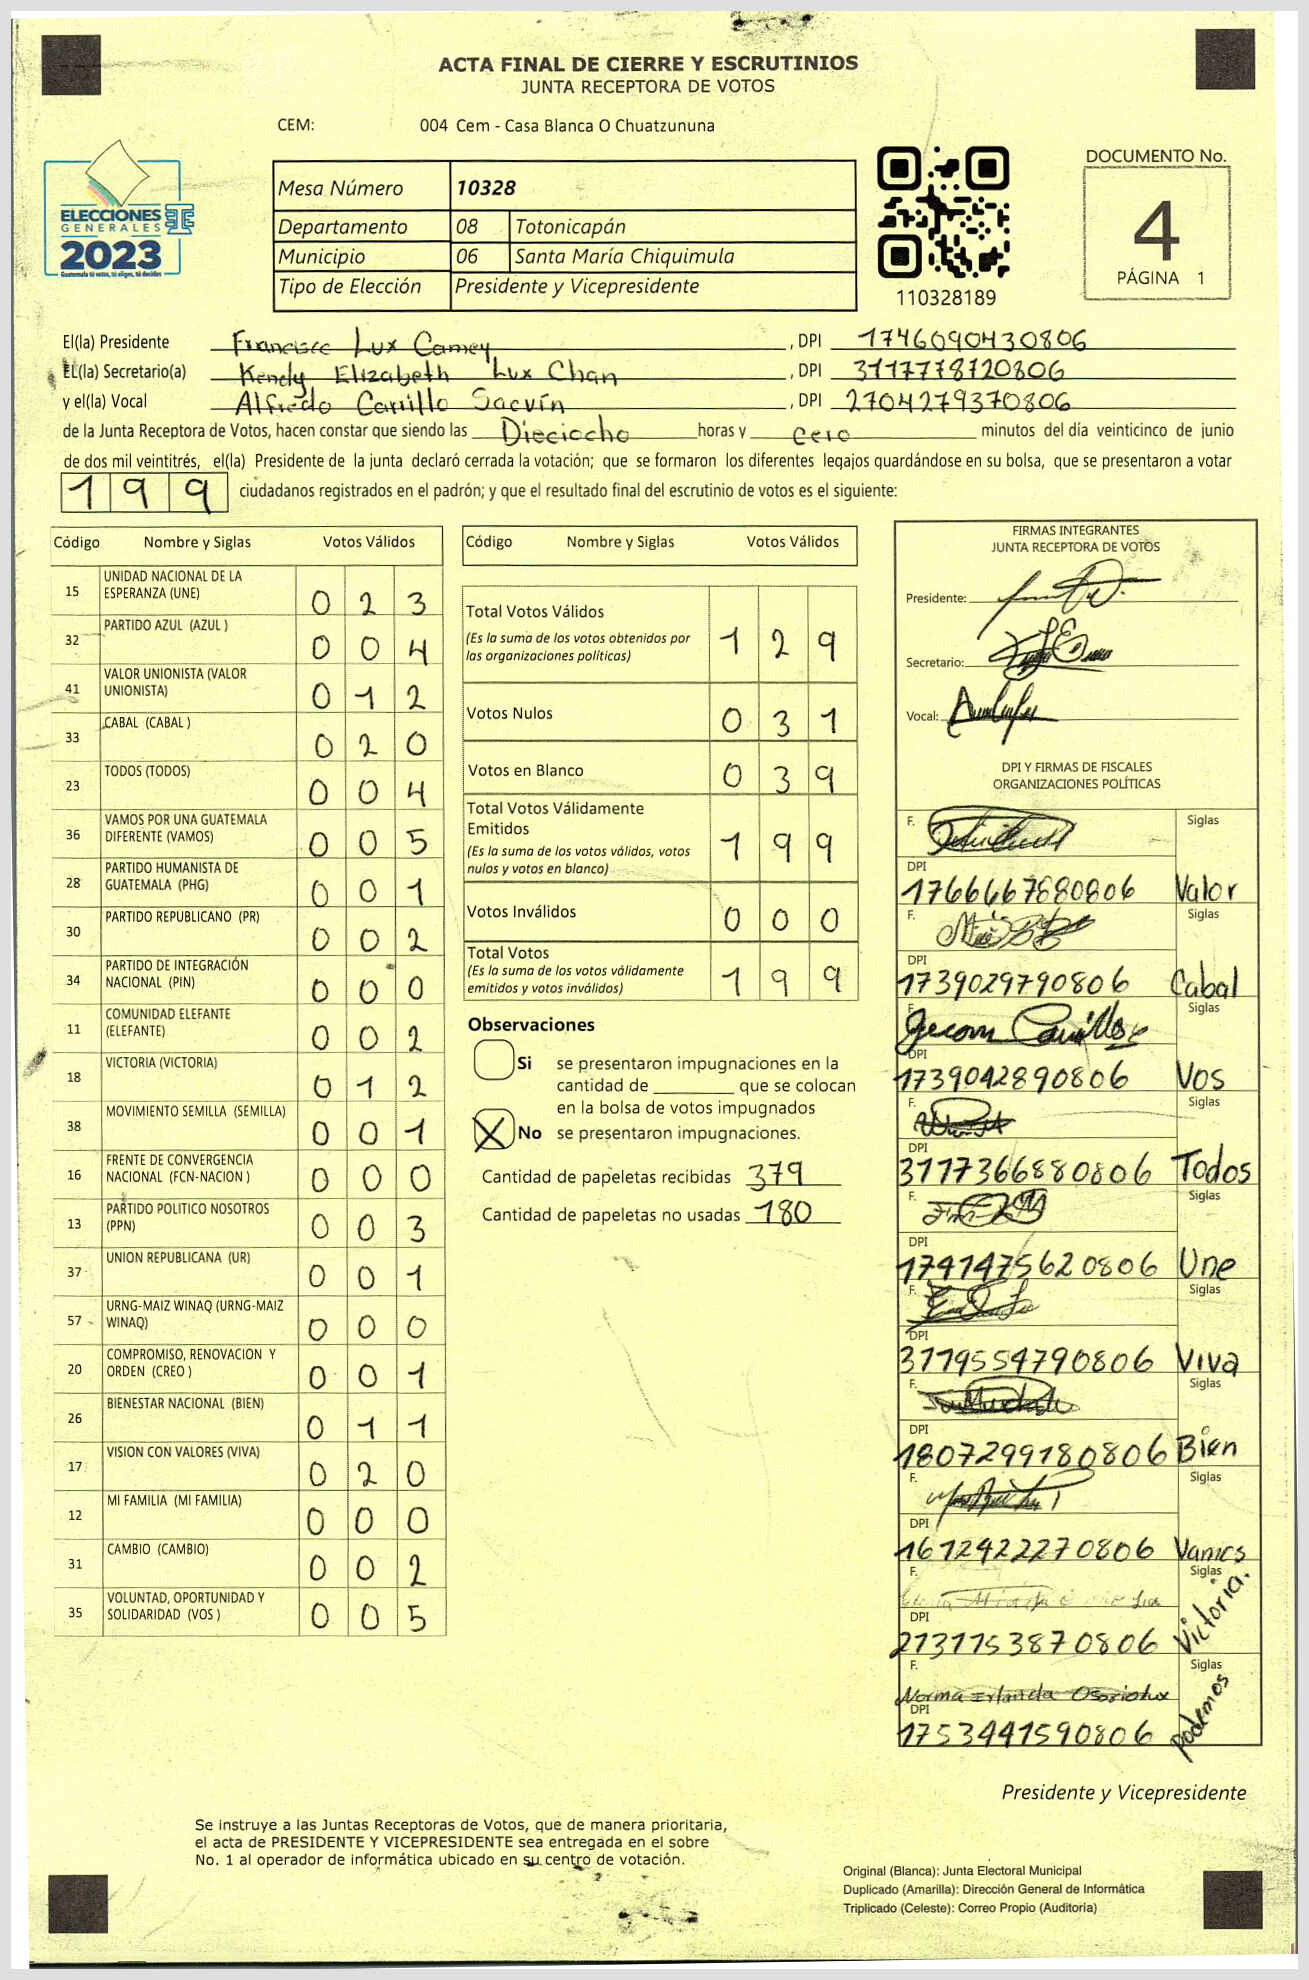 ACTA FINAL DE CIERRE Y ESCRUTINIOS
JUNTA RECEPTORA DE VOTOS
CEM: 004 Cem - Casa Blanca O Chuatzununa
ELECCIONES
GENERALES
2023
Guatemala tú votas, tú eliges, tú decides
Mesa Número 10328
Departamento 08 Totonicapán
Municipio 06 Santa María Chiquimula
Tipo de Elección Presidente y Vicepresidente
110328189
DOCUMENTO No.
4
PÁGINA 1
El(la) Presidente Francisco Lux Camey, DPI 1746090430806
EL(la) Secretario(a) Kendy Elizabeth Lux Chan, DPI 3117778120806
y el(la) Vocal Alfredo Carrillo Sacvín, DPI 2704279370806
de la Junta Receptora de Votos, hacen constar que siendo las Dieciocho horas y cero minutos del día veinticinco de junio
de dos mil veintitrés, el(la) Presidente de la junta declaró cerrada la votación; que se formaron los diferentes legajos guardándose en su bolsa, que se presentaron a votar
199 ciudadanos registrados en el padrón; y que el resultado final del escrutinio de votos es el siguiente:
Código Nombre y Siglas Votos Válidos
15 UNIDAD NACIONAL DE LA
ESPERANZA (UNE) 0 2 3
32 PARTIDO AZUL (AZUL ) 0 0 4
41 VALOR UNIONISTA (VALOR
UNIONISTA) 0 1 2
33 CABAL (CABAL ) 0 2 0
23 TODOS (TODOS) 0 0 4
36 VAMOS POR UNA GUATEMALA
DIFERENTE (VAMOS) 0 0 5
28 PARTIDO HUMANISTA DE
GUATEMALA (PHG) 0 0 1
30 PARTIDO REPUBLICANO (PR) 0 0 2
34 PARTIDO DE INTEGRACIÓN
NACIONAL (PIN) 0 0 0
11 COMUNIDAD ELEFANTE
(ELEFANTE) 0 0 2
18 VICTORIA (VICTORIA) 0 1 2
38 MOVIMIENTO SEMILLA (SEMILLA) 0 0 1
16 FRENTE DE CONVERGENCIA
NACIONAL (FCN-NACION ) 0 0 0
13 PARTIDO POLITICO NOSOTROS
(PPN) 0 0 3
37 UNION REPUBLICANA (UR) 0 0 1
57 URNG-MAIZ WINAQ (URNG-MAIZ
WINAQ) 0 0 0
20 COMPROMISO, RENOVACION Y
ORDEN (CREO ) 0 0 1
26 BIENESTAR NACIONAL (BIEN) 0 1 1
17 VISION CON VALORES (VIVA) 0 2 0
12 MI FAMILIA (MI FAMILIA) 0 0 0
31 CAMBIO (CAMBIO) 0 0 2
35 VOLUNTAD, OPORTUNIDAD Y
SOLIDARIDAD (VOS ) 0 0 5
Código Nombre y Siglas Votos Válidos
Total Votos Válidos 1 2 9
(Es la suma de los votos obtenidos por
las organizaciones políticas)
Votos Nulos 0 3 1
Votos en Blanco 0 3 9
Total Votos Válidamente
Emitidos 1 9 9
(Es la suma de los votos válidos, votos
nulos y votos en blanco)
Votos Inválidos 0 0 0
Total Votos 1 9 9
(Es la suma de los votos válidamente
emitidos y votos inválidos)
Observaciones
Si se presentaron impugnaciones en la
cantidad de que se colocan
en la bolsa de votos impugnados
X No se presentaron impugnaciones.
Cantidad de papeletas recibidas 379
Cantidad de papeletas no usadas 180
FIRMAS INTEGRANTES
JUNTA RECEPTORA DE VOTOS
Presidente:
Secretario:
Vocal:
DPI Y FIRMAS DE FISCALES
ORGANIZACIONES POLÍTICAS
F. Siglas
DPI
1766667880806 Valor
F. Siglas
DPI
1739029790806 Cabal
F. Siglas
DPI
1739042890806 Vos
F. Siglas
DPI
3117366880806 Todos
F. Siglas
DPI
1741475620806 Une
F. Siglas
DPI
3119554790806 Viva
F. Siglas
DPI
1807299180806 Bien
F. Siglas
DPI
1612422270806 Vamos
F. Siglas
DPI
2131153870806 Victoria.
F. Siglas
Norma
DPI
1753441590806 Podemos
Presidente y Vicepresidente
Se instruye a las Juntas Receptoras de Votos, que de manera prioritaria,
el acta de PRESIDENTE Y VICEPRESIDENTE sea entregada en el sobre
No. 1 al operador de informática ubicado en su centro de votación.
Original (Blanca): Junta Electoral Municipal
Duplicado (Amarilla): Dirección General de Informática
Triplicado (Celeste): Correo Propio (Auditoria)